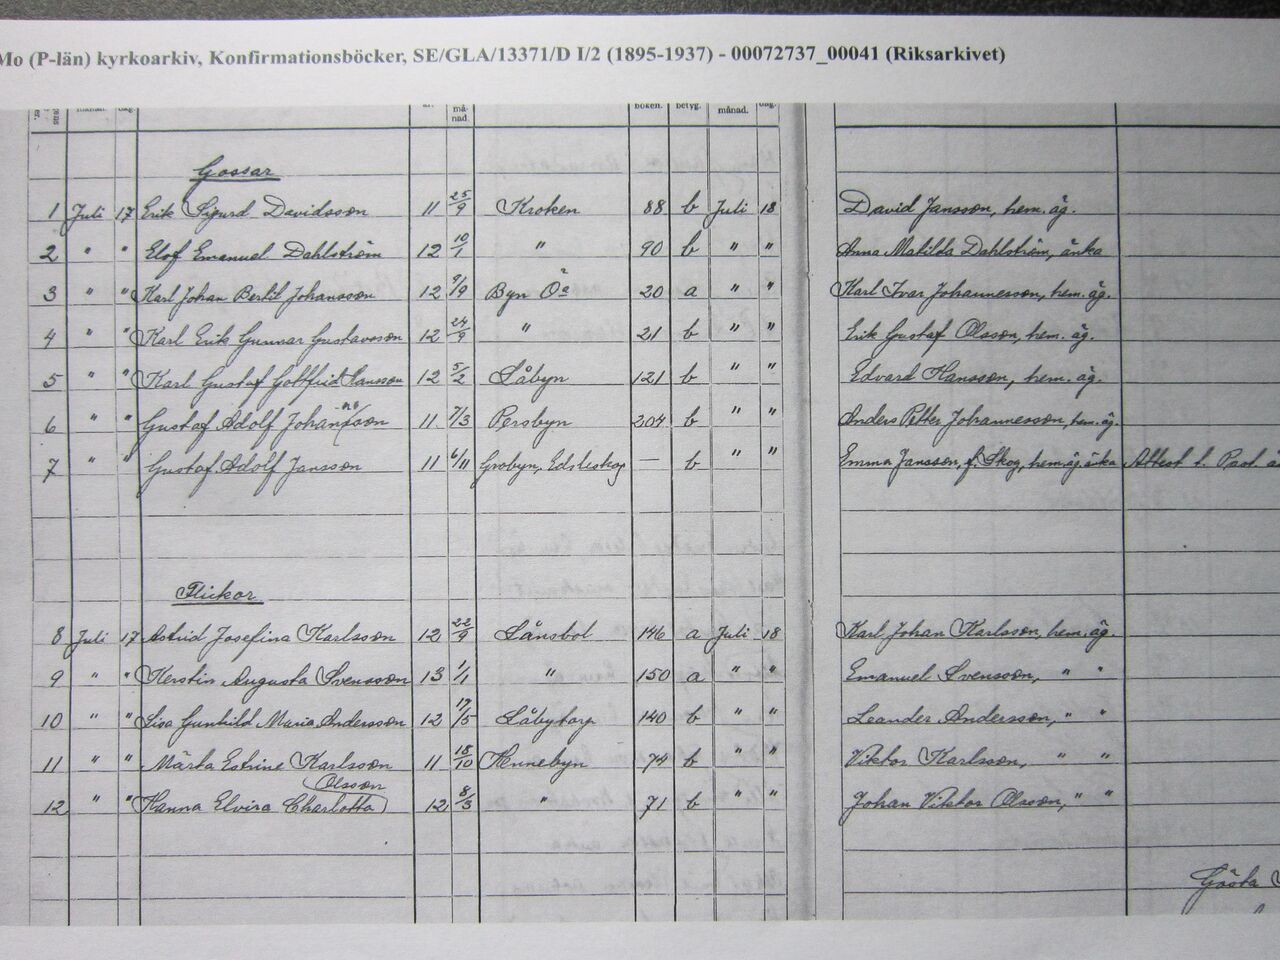 Mo (P-län) kyrkoarkiv, Konfirmationsböcker, SE/GLA/13371/D I/2 (1895-1937) - 00072737_00041 (Riksarkivet)
månad. dag. år. må-nad. boken. betyg. månad. dag.
Gossar
1 Juli 17 Erik Sigurd Davidsson 11 25/9 Kroken 88 b Juli 18 David Jansson, hem.äg.
2 " " Elof Emanuel Dahlström 12 10/1 " 90 b " " Anna Matilda Dahlström, änka
3 " " Karl Johan Bertil Johansson 12 9/9 Byn Ö" 20 a " " Karl Ivar Johannesson, hem.äg.
4 " " Karl Erik Gunnar Gustavsson 12 24/9 " 21 b " " Erik Gustaf Olsson, hem.äg.
5 " " Karl Gustaf Gottfrid Hansson 12 5/2 Låbyn 121 b " " Edvard Hansson, hem.äg.
6 " " Gustaf Adolf Johansson 11 7/3 Persbyn 204 b " " Anders Petter Johannesson, hem.äg.
7 " " Gustaf Adolf Jansson 11 6/11 Grobyn, Edsleskog — b " " Emma Jansson, f. Skog, hem.äg.änka Attest f. Past.
Flickor
8 Juli 17 Astrid Josefina Karlsson 12 22/9 Lånsbol 146 a Juli 18 Karl Johan Karlsson, hem.äg.
9 " " Kerstin Augusta Svensson 13 1/1 " 150 a " " Emanuel Svensson, " "
10 " " Lisa Gunhild Maria Andersson 12 17/5 Låbytorp 140 b " " Leander Andersson, " "
11 " " Märta Estrine Karlsson 11 18/10 Hennebyn 74 b " " Viktor Karlsson, " "
Olsson
12 " " Hanna Elvira Charlotta 12 8/3 " 71 b " " Johan Viktor Olsson, " "
Gösta